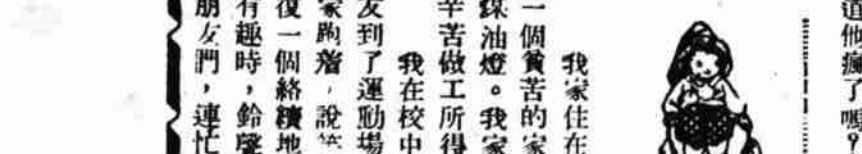 道他瘋了嗎？
我家住在
一個貧苦的家
油燈。我家
辛苦做工所得
我在校中
友到了運動場
家跑着，說笑
復一個絡續地
有趣時，鈴聲
朋友們，連忙